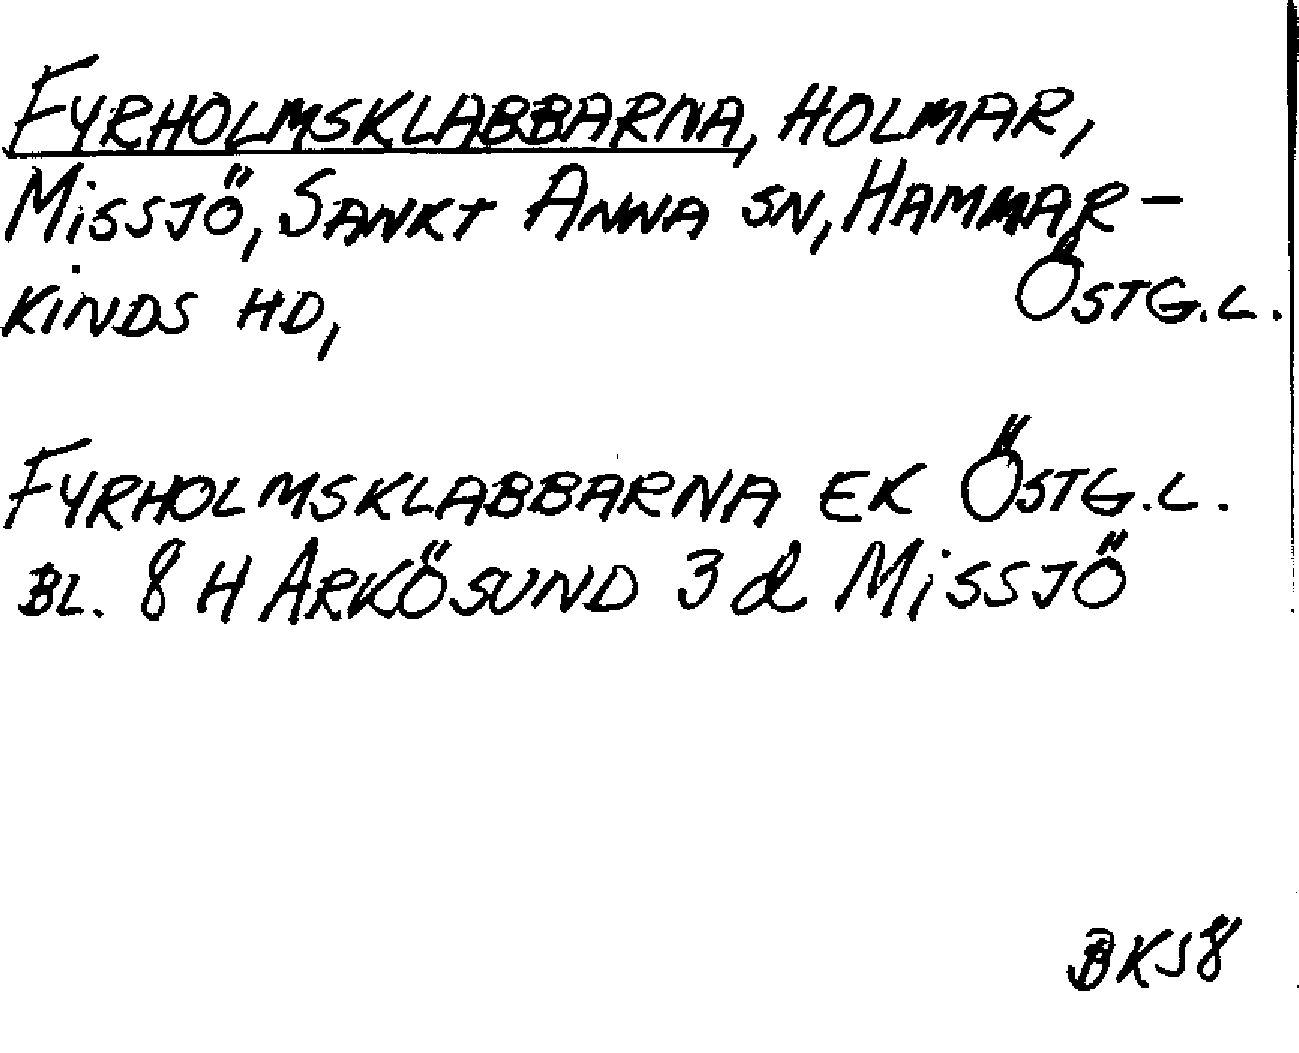 FYRHOLMSKLABBARNA, HOLMAR,
MISSJÖ, SANKT ANNA SN, HAMMAR-
KINDS HD, ÖSTG.L.
FYRHOLMSKLABBARNA EK ÖSTG.L.
BL. 8 H ARKÖSUND 3 d MISSJÖ
BKS8